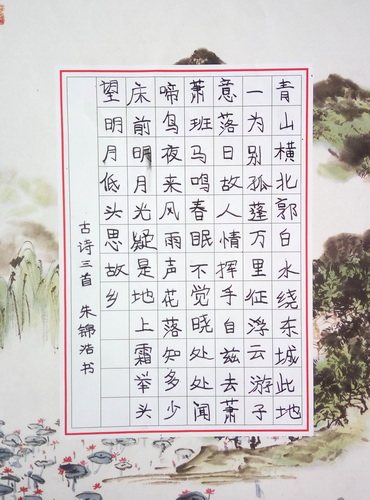 青山横北郭白水绕东城此地
一为别孤蓬万里征浮云游子
意落日故人情挥手自兹去萧
萧班马鸣春眠不觉晓处处闻
啼鸟夜来风雨声花落知多少
床前明月光疑是地上霜举头
望明月低头思故乡
古诗三首 朱锦浩书